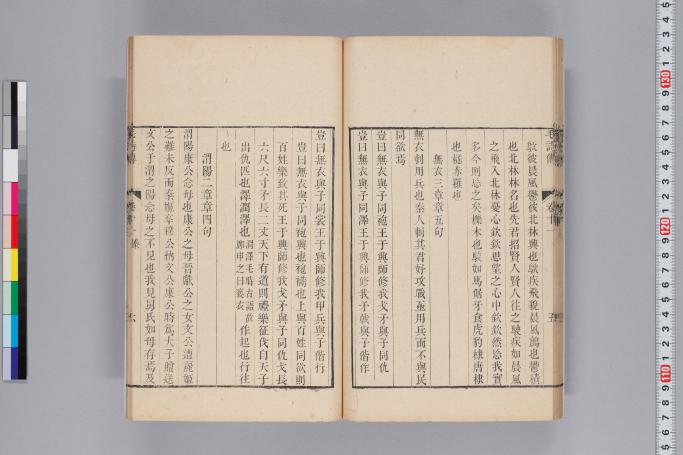 鴥彼晨風鬱彼北林興也鴥疾飛貌晨風鸇也鬱積
也北林林名也先君招賢人賢人往之駛疾如晨風
之飛入北林憂心欽欽思望之心中欽欽然忘我實
多今則忘之矣櫟木也駮如馬倨牙食虎豹棣唐棣
也檖赤羅也
無衣三章章五句
無衣刺用兵也秦人刺其君好攻戰亟用兵而不與民
同欲焉
豈曰無衣與子同袍王于興師修我戈矛與子同仇
豈曰無衣與子同澤王于興師修我矛戟與子偕作
豈曰無衣與子同裳王于興師修我甲兵與子偕行
豈曰無衣與子同袍興也袍襺也上與百姓同欲則
百姓樂致其死王于興師修我戈矛與子同仇戈長
六尺六寸矛長二丈天下有道則禮樂征伐自天子
出仇匹也澤潤澤也作起也行往
也
渭陽二章章四句
渭陽康公念母也康公之母晉獻公之女文公遭麗姬
之難未反而秦姬卒穆公納文公康公時為大子贈送
文公于渭之陽念母之不見也我見舅氏如母存焉及